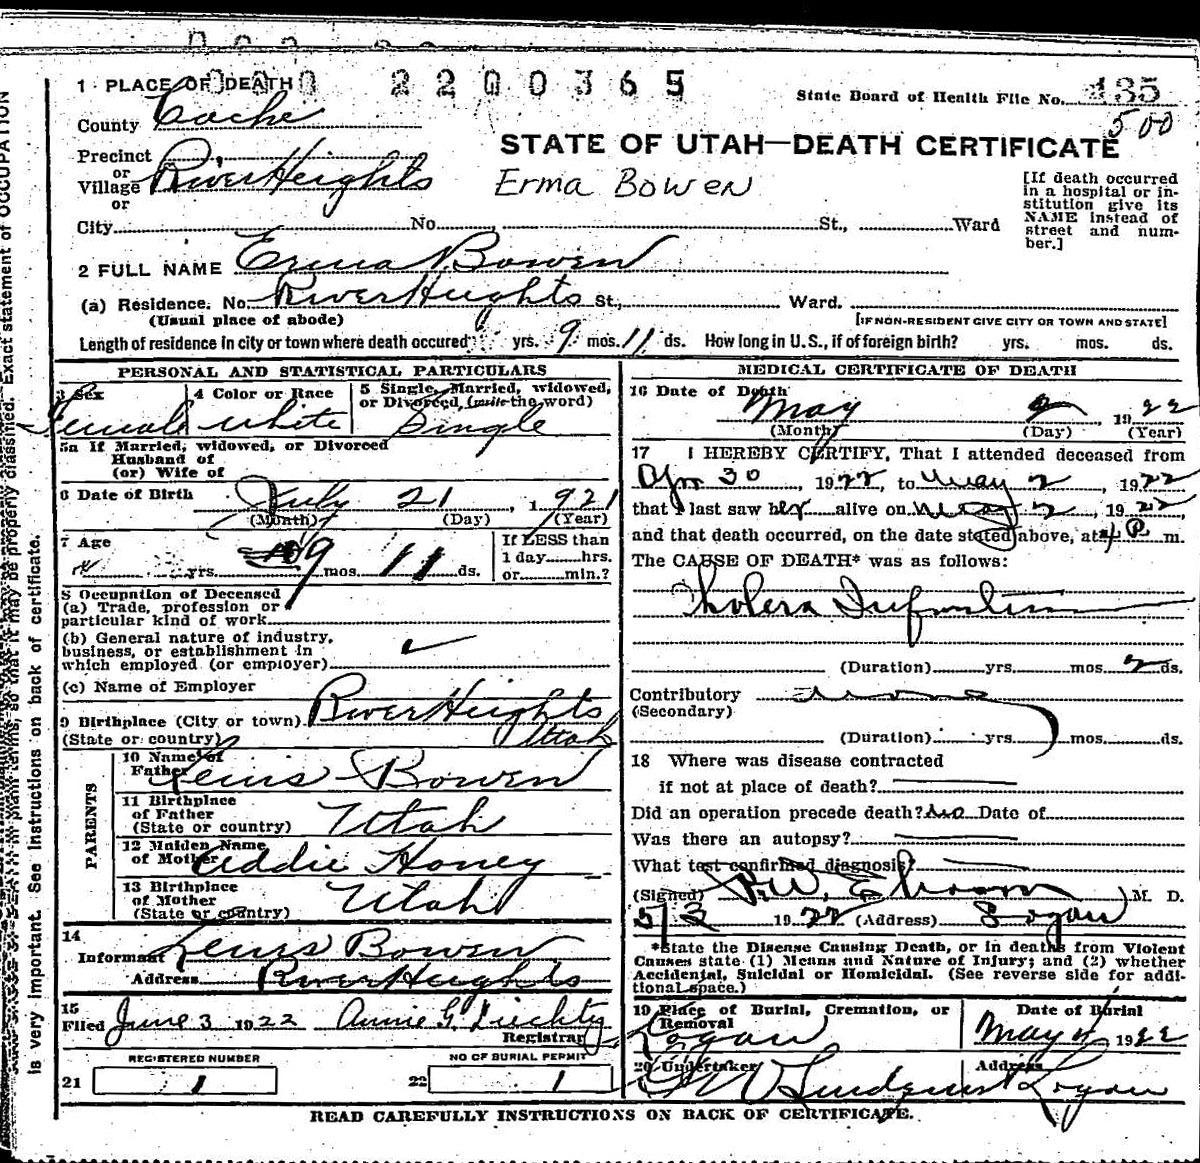 2200365
1 PLACE OF DEATH
State Board of Health File No. 135
500
County Cache
STATE OF UTAH—DEATH CERTIFICATE
Precinct
or
Village River Heights
Erma Bowen
or
[If death occurred in a hospital or institution give its NAME instead of street and number.]
City No. St., Ward
2 FULL NAME Erma N. Bowen
(a) Residence. No. River Heights St., Ward.
(Usual place of abode)
[IF NON-RESIDENT GIVE CITY OR TOWN AND STATE]
Length of residence in city or town where death occured yrs. 9 mos. 11 ds. How long in U. S., if of foreign birth? yrs. mos. ds.
PERSONAL AND STATISTICAL PARTICULARS
3 Sex
Female
4 Color or Race
White
5 Single, Married, widowed, or Divorced, (write the word)
Single
5a If Married, widowed, or Divorced
Husband of
(or) Wife of
6 Date of Birth
July 21, 1921
(Month) (Day) (Year)
7 Age
yrs. 9 mos. 11 ds.
If LESS than
1 day hrs.
or min.?
8 Occupation of Deceased
(a) Trade, profession or
particular kind of work
(b) General nature of industry,
business, or establishment in
which employed (or employer)
(c) Name of Employer
9 Birthplace (City or town) River Heights
(State or country) Utah
PARENTS
10 Name of
Father Lewis Bowen
11 Birthplace
of Father
(State or country) Utah
12 Maiden Name
of Mother Addie Honey
13 Birthplace
of Mother
(State or country) Utah
14
Informant Lewis Bowen
Address River Heights
15
Filed June 3 1922 Annie G. Liechty
Registrar
REGISTERED NUMBER
21 1
NO OF BURIAL PERMIT
22 1
MEDICAL CERTIFICATE OF DEATH
16 Date of Death
May 2 1922
(Month) (Day) (Year)
17 I HEREBY CERTIFY, That I attended deceased from
Apr 30, 1922, to May 2, 1922
that I last saw her alive on May 2, 1922,
and that death occurred, on the date stated above, at 4 P m.
The CAUSE OF DEATH* was as follows:
Cholera Infantum
(Duration) yrs. mos. 2 ds.
Contributory none
(Secondary)
(Duration) yrs. mos. ds.
18 Where was disease contracted
if not at place of death?
Did an operation precede death? No Date of
Was there an autopsy?
What test confirmed diagnosis?
(Signed) M. D.
5/3 1922 (Address) Logan
*State the Disease Causing Death, or in deaths from Violent
Causes state (1) Means and Nature of Injury; and (2) whether
Accidental, Suicidal or Homicidal. (See reverse side for additional space.)
19 Place of Burial, Cremation, or
Removal
Logan
Date of Burial
May 4 1922
20 Undertaker
Address
Logan
READ CAREFULLY INSTRUCTIONS ON BACK OF CERTIFICATE.
Exact statement of OCCUPATION
so that it may be properly classified.
is very important. See instructions on back of certificate.